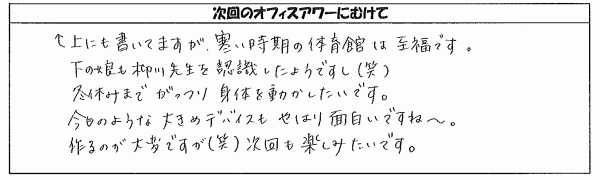 次回のオフィスアワーにむけて
↑上にも書いてますが、寒い時期の体育館は至福です。
下の娘も柳川先生を認識したようですし(笑)
冬休みまでがっつり身体を動かしたいです。
今日のような大きめデバイスもやはり面白いですね〜。
作るのが大変ですが(笑)次回も楽しみたいです。